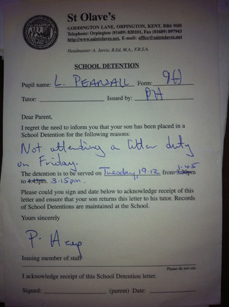 St Olave's
GODDINGTON LANE, ORPINGTON, KENT, BR6 9SH
Telephone: Orpington (01689) 820101, Fax (01689) 897943
Headmaster: A. Jarvis, B.Ed, M.A., F.R.S.A.
SCHOOL DETENTION
Pupil name: L PEARSALL Form: 9H
Tutor: Issued by: PH
Dear Parent,
I regret the need to inform you that your son has been placed in a
School Detention for the following reasons:
Not attending a litter duty
on Friday.
The detention is to be served on Tuesday, 19.12, from
to 3.15pm.
Please could you sign and date below to acknowledge receipt of this
letter and ensure that your son returns this letter to his tutor. Records
of School Detentions are maintained at the School.
Yours sincerely
Issuing member of staff
Please do not cut
I acknowledge receipt of this School Detention letter:
Signed: (parent) Date: